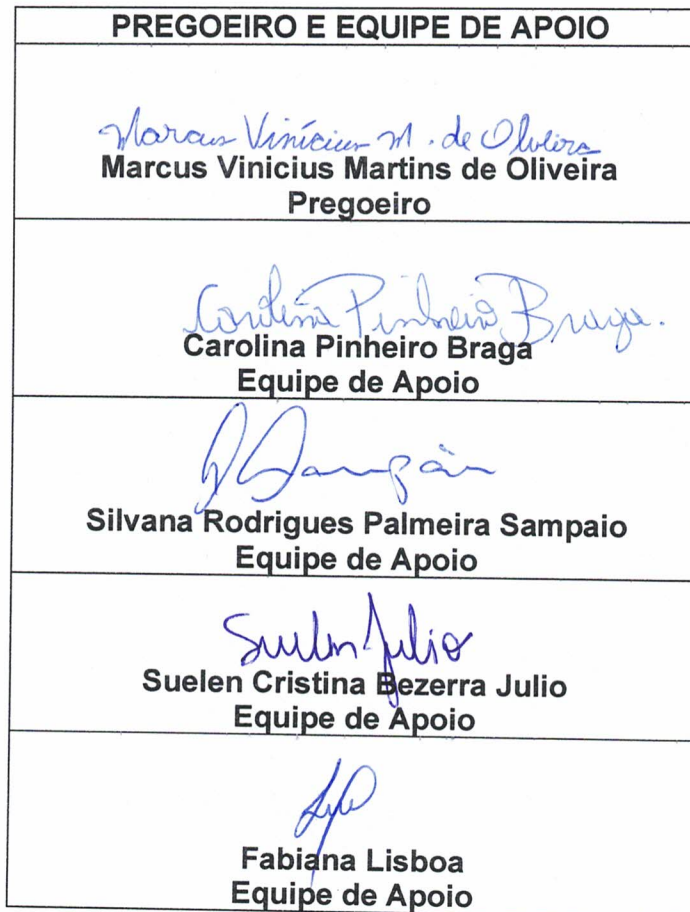 PREGOEIRO E EQUIPE DE APOIO
Marcus Vinícius M. de Oliveira
Marcus Vinicius Martins de Oliveira
Pregoeiro
Carolina Pinheiro Braga.
Carolina Pinheiro Braga
Equipe de Apoio
Sampaio
Silvana Rodrigues Palmeira Sampaio
Equipe de Apoio
Suelen Julio
Suelen Cristina Bezerra Julio
Equipe de Apoio
Fabiana Lisboa
Equipe de Apoio